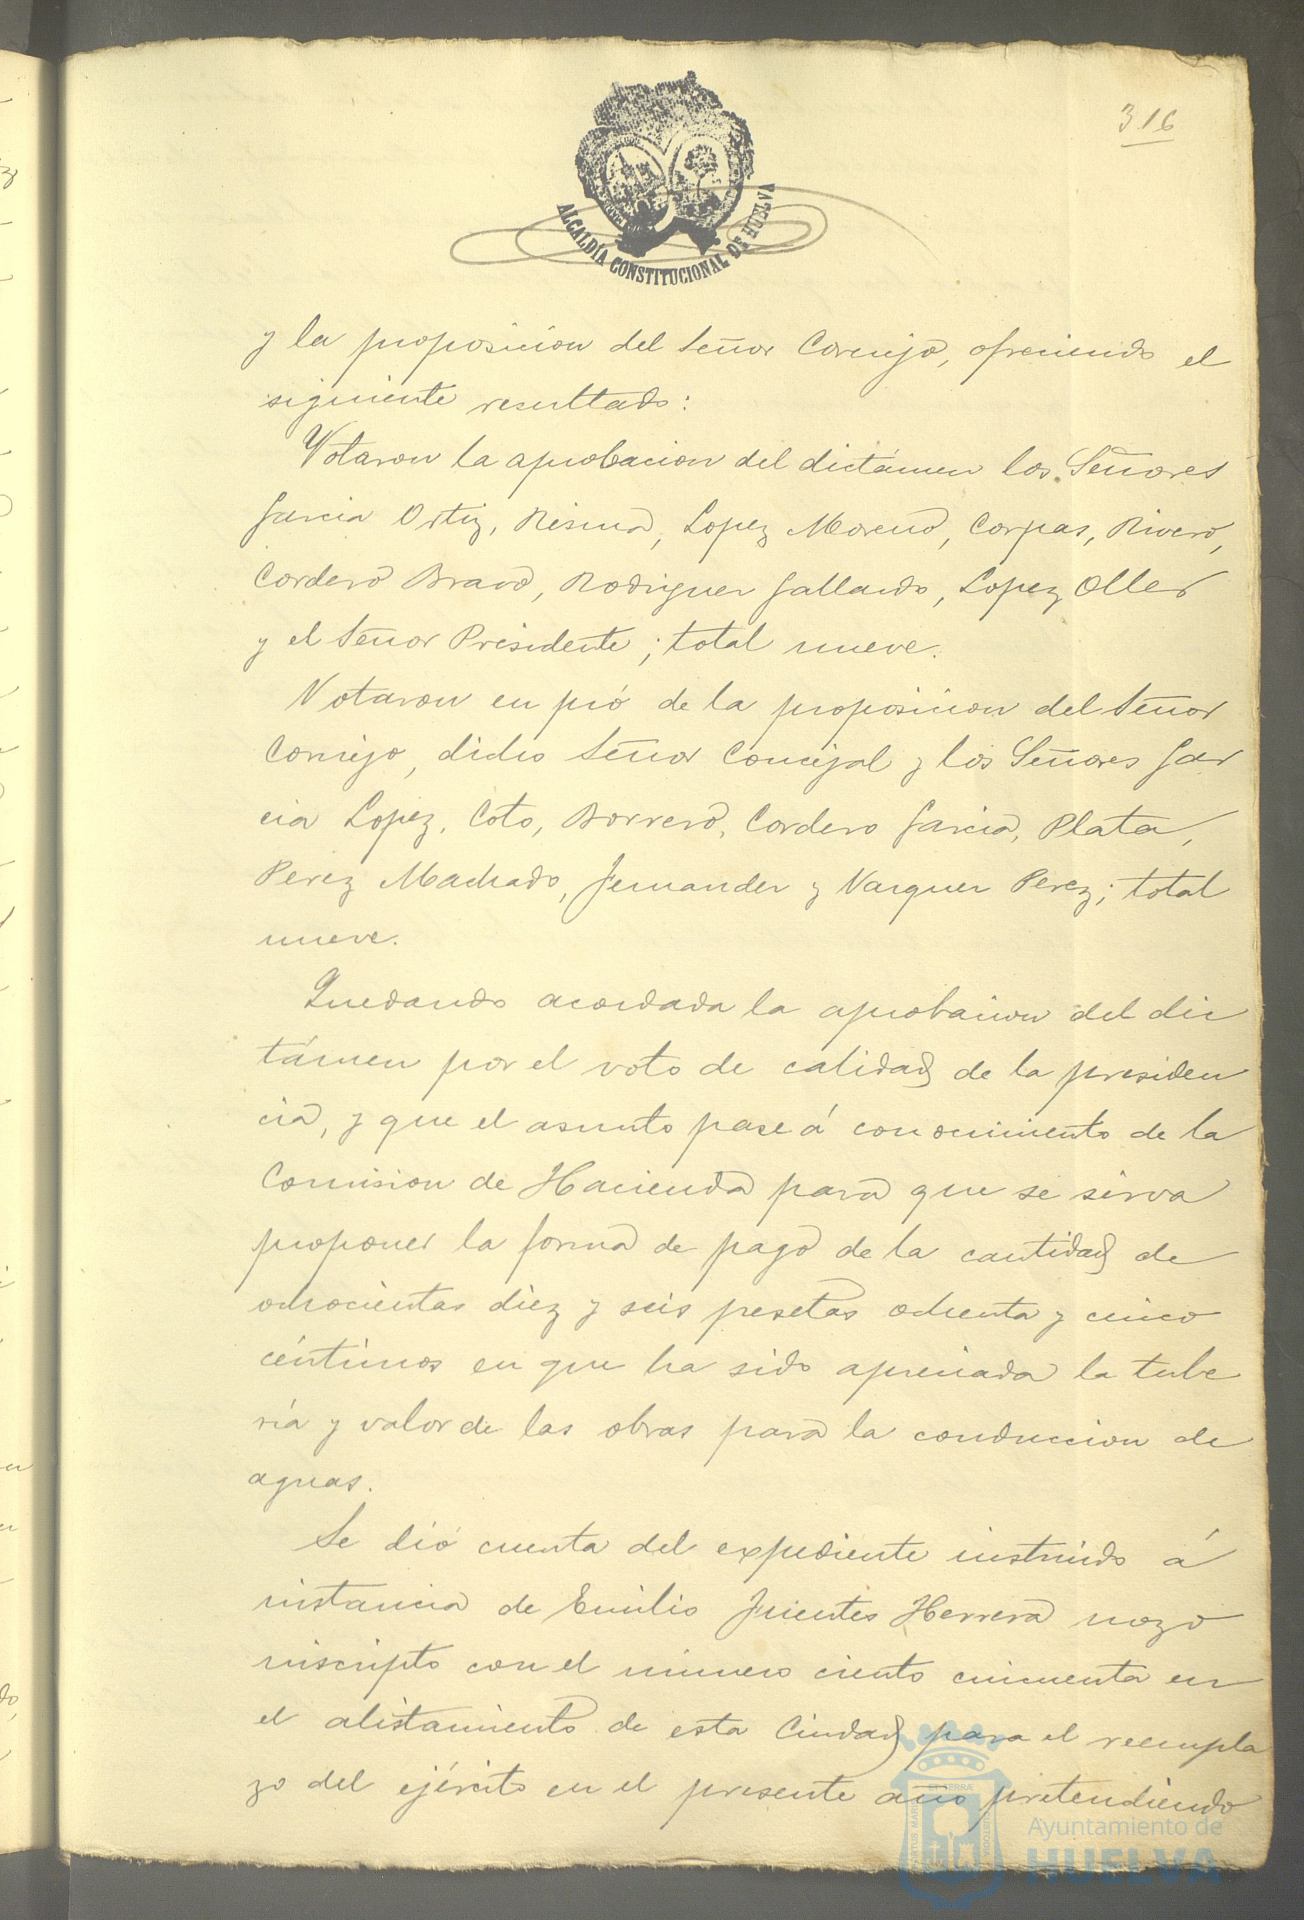 316
ALCALDÍA CONSTITUCIONAL DE HUELVA
y la proposicion del Señor Cornejo, ofreciendo el
siguiente resultado:
Votaron la aprobacion del dictámen los Señores
Garcia Ortiz, Resma, Lopez Moreno, Corpas, Rivero,
Cordero Bravo, Rodriguez Gallardo, Lopez Oller
y el Señor Presidente; total nueve.
Votaron en pró de la proposicion del Señor
Cornejo, dicho Señor Concejal y los Señores Gar
cia Lopez, Coto, Borrero, Cordero Garcia, Plata,
Perez Machado, Fernandez y Vazquez Perez; total
nueve.
Quedando acordada la aprobacion del dic
támen por el voto de calidad de la presiden
cia, y que el asunto pase á conocimiento de la
Comision de Hacienda para que se sirva
proponer la forma de pago de la cantidad de
ochocientas diez y seis pesetas ochenta y cinco
céntimos en que ha sido apreciada la tube
ría y valor de las obras para la conduccion de
aguas.
Se dió cuenta del expediente instruido á
instancia de Emilio Fuentes Herrera mozo
inscripto con el número ciento cincuenta en
el alistamiento de esta Ciudad para el reempla
zo del ejército en el presente año pretendiendo
Ayuntamiento de
HUELVA